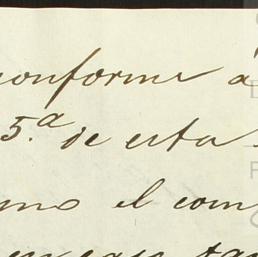 conforme á
5.ª de esta
mo el com